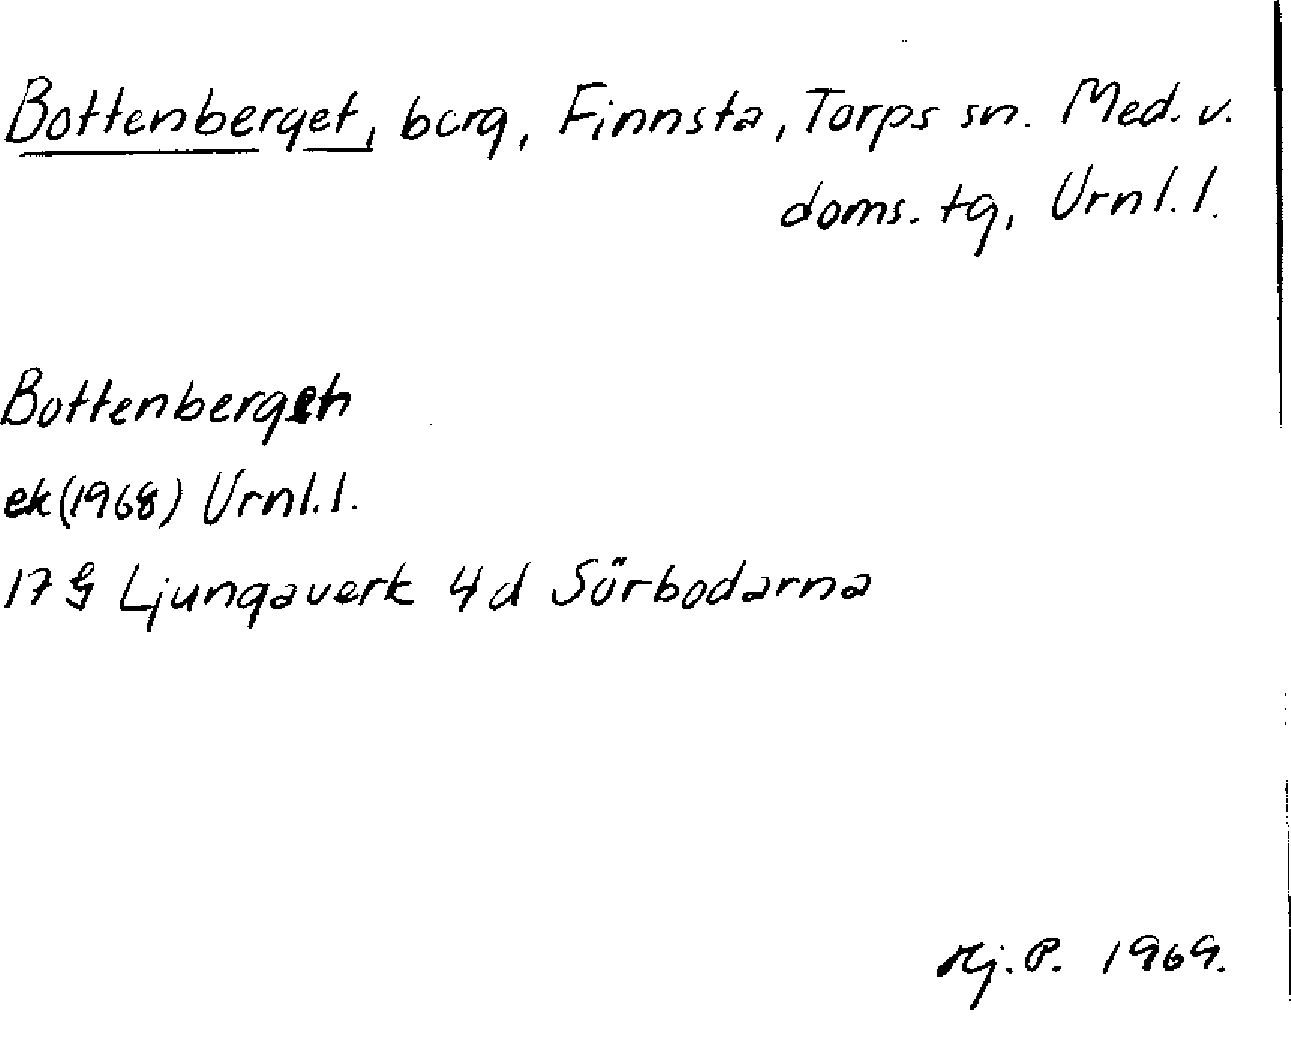 Bottenberget, berg, Finnsta, Torps sn. Med. v.
doms. tg, Urnl. l.
Bottenberget
ek (1968) Urnl. l.
17 G Ljungaverk 4d Sörbodarna
Hj. P. 1969.